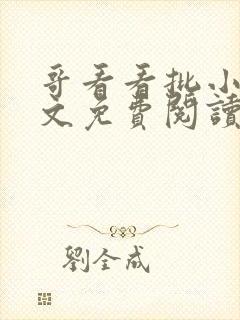 哥看看批小
文免費閱讀
劉全成